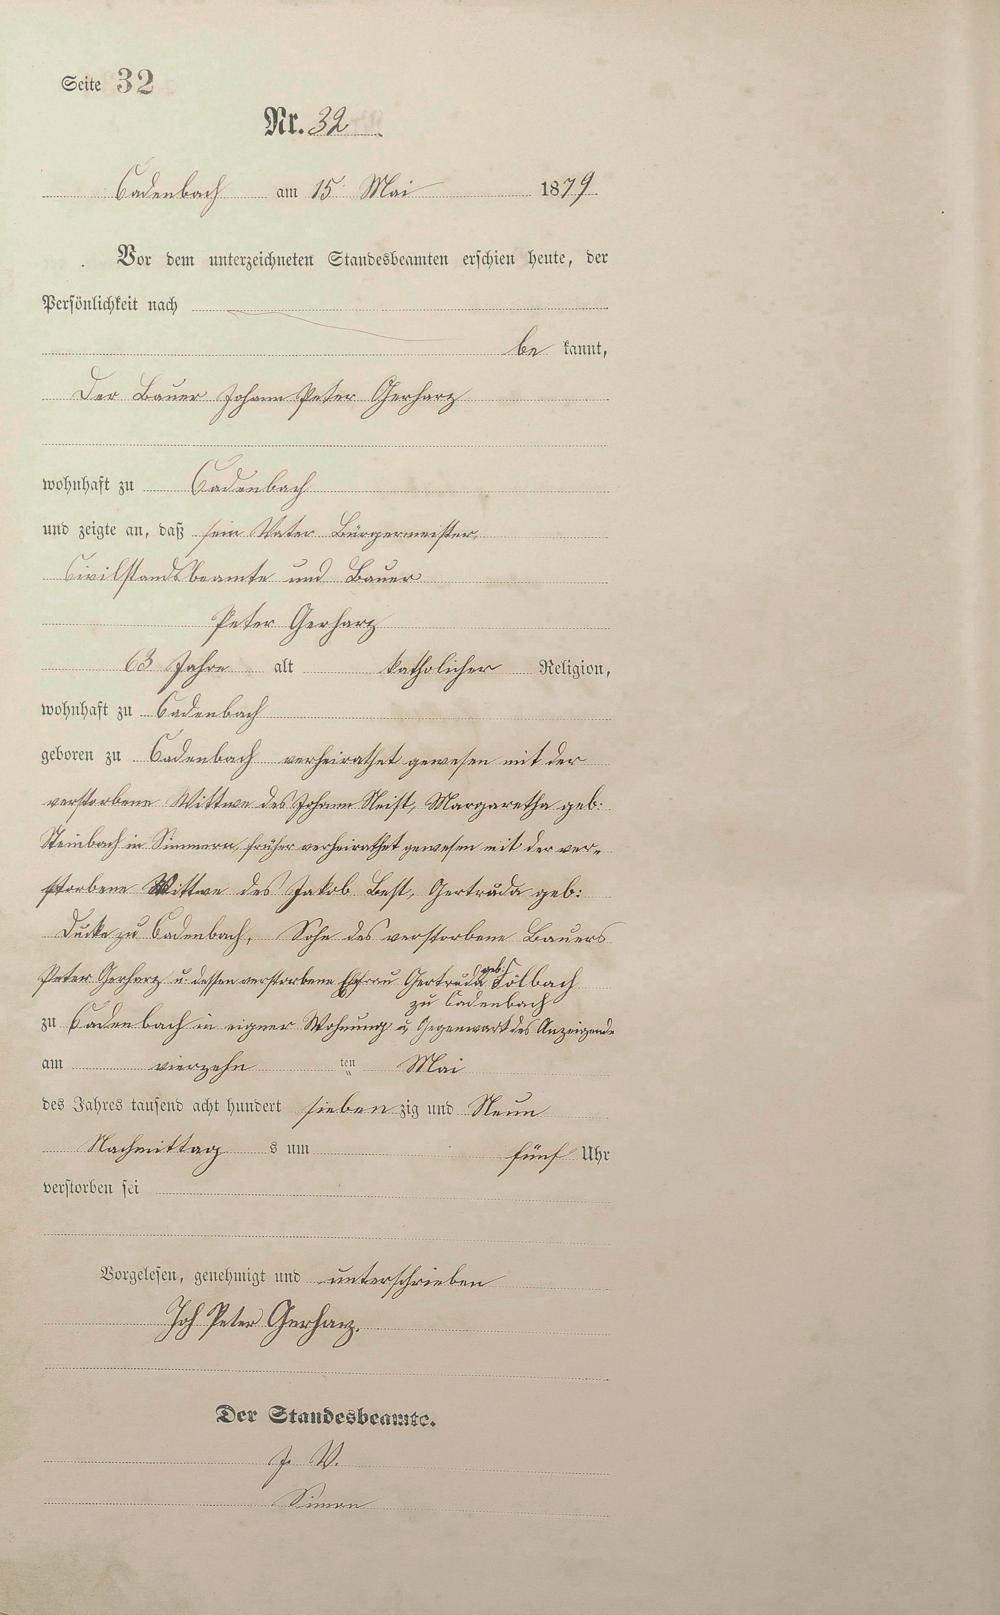 Seite 32
Nr. 32
Cadenbach am 15 Mai 1879
Vor dem unterzeichneten Standesbeamten erschien heute, der
Persönlichkeit nach
be kannt,
Der Bauer Johann Peter Gerharz
wohnhaft zu Cadenbach
und zeigte an, daß sein Vater Bürgermeister,
Civilstandsbeamte und Bauer
Peter Gerharz
63 Jahre alt katholicher Religion,
wohnhaft zu Cadenbach
geboren zu Cadenbach verheirathet gewesen mit der
verstorbene Wittwe des Johann Neist, Margaretha geb:
Steinbach in Simmern, früher verheirathet gewesen mit der ver-
storbene Wittwe des Jakob Best, Gertruda geb:
Ducke zu Cadenbach, Sohn des verstorbene Bauers
Peter Gerharz u. dessen verstorbene Ehfrau Gertruda geb: Kölbach
zu Cadenbach
zu Cadenbach in eigner Wohnung u, Gegenwart des Anzeigende
am vierzehn ten Mai
des Jahres tausend acht hundert sieben zig und Neun
Nachmittag s um fünf Uhr
verstorben sei
Vorgelesen, genehmigt und unterschrieben
Joh Peter Gerharz.
Der Standesbeamte.
J. V.
Simon